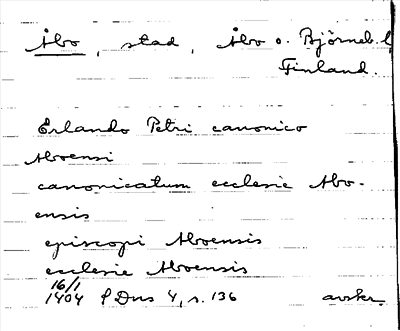 Åbo, stad, Åbo o. Björneb. l
Finland.
Erlando Petri canonico
Aboensi
canonicatum ecclesie Abo-
ensis
episcopi Aboensis
ecclesie Aboensis
16/1
1404 P Dns 4, s. 136 avskr.